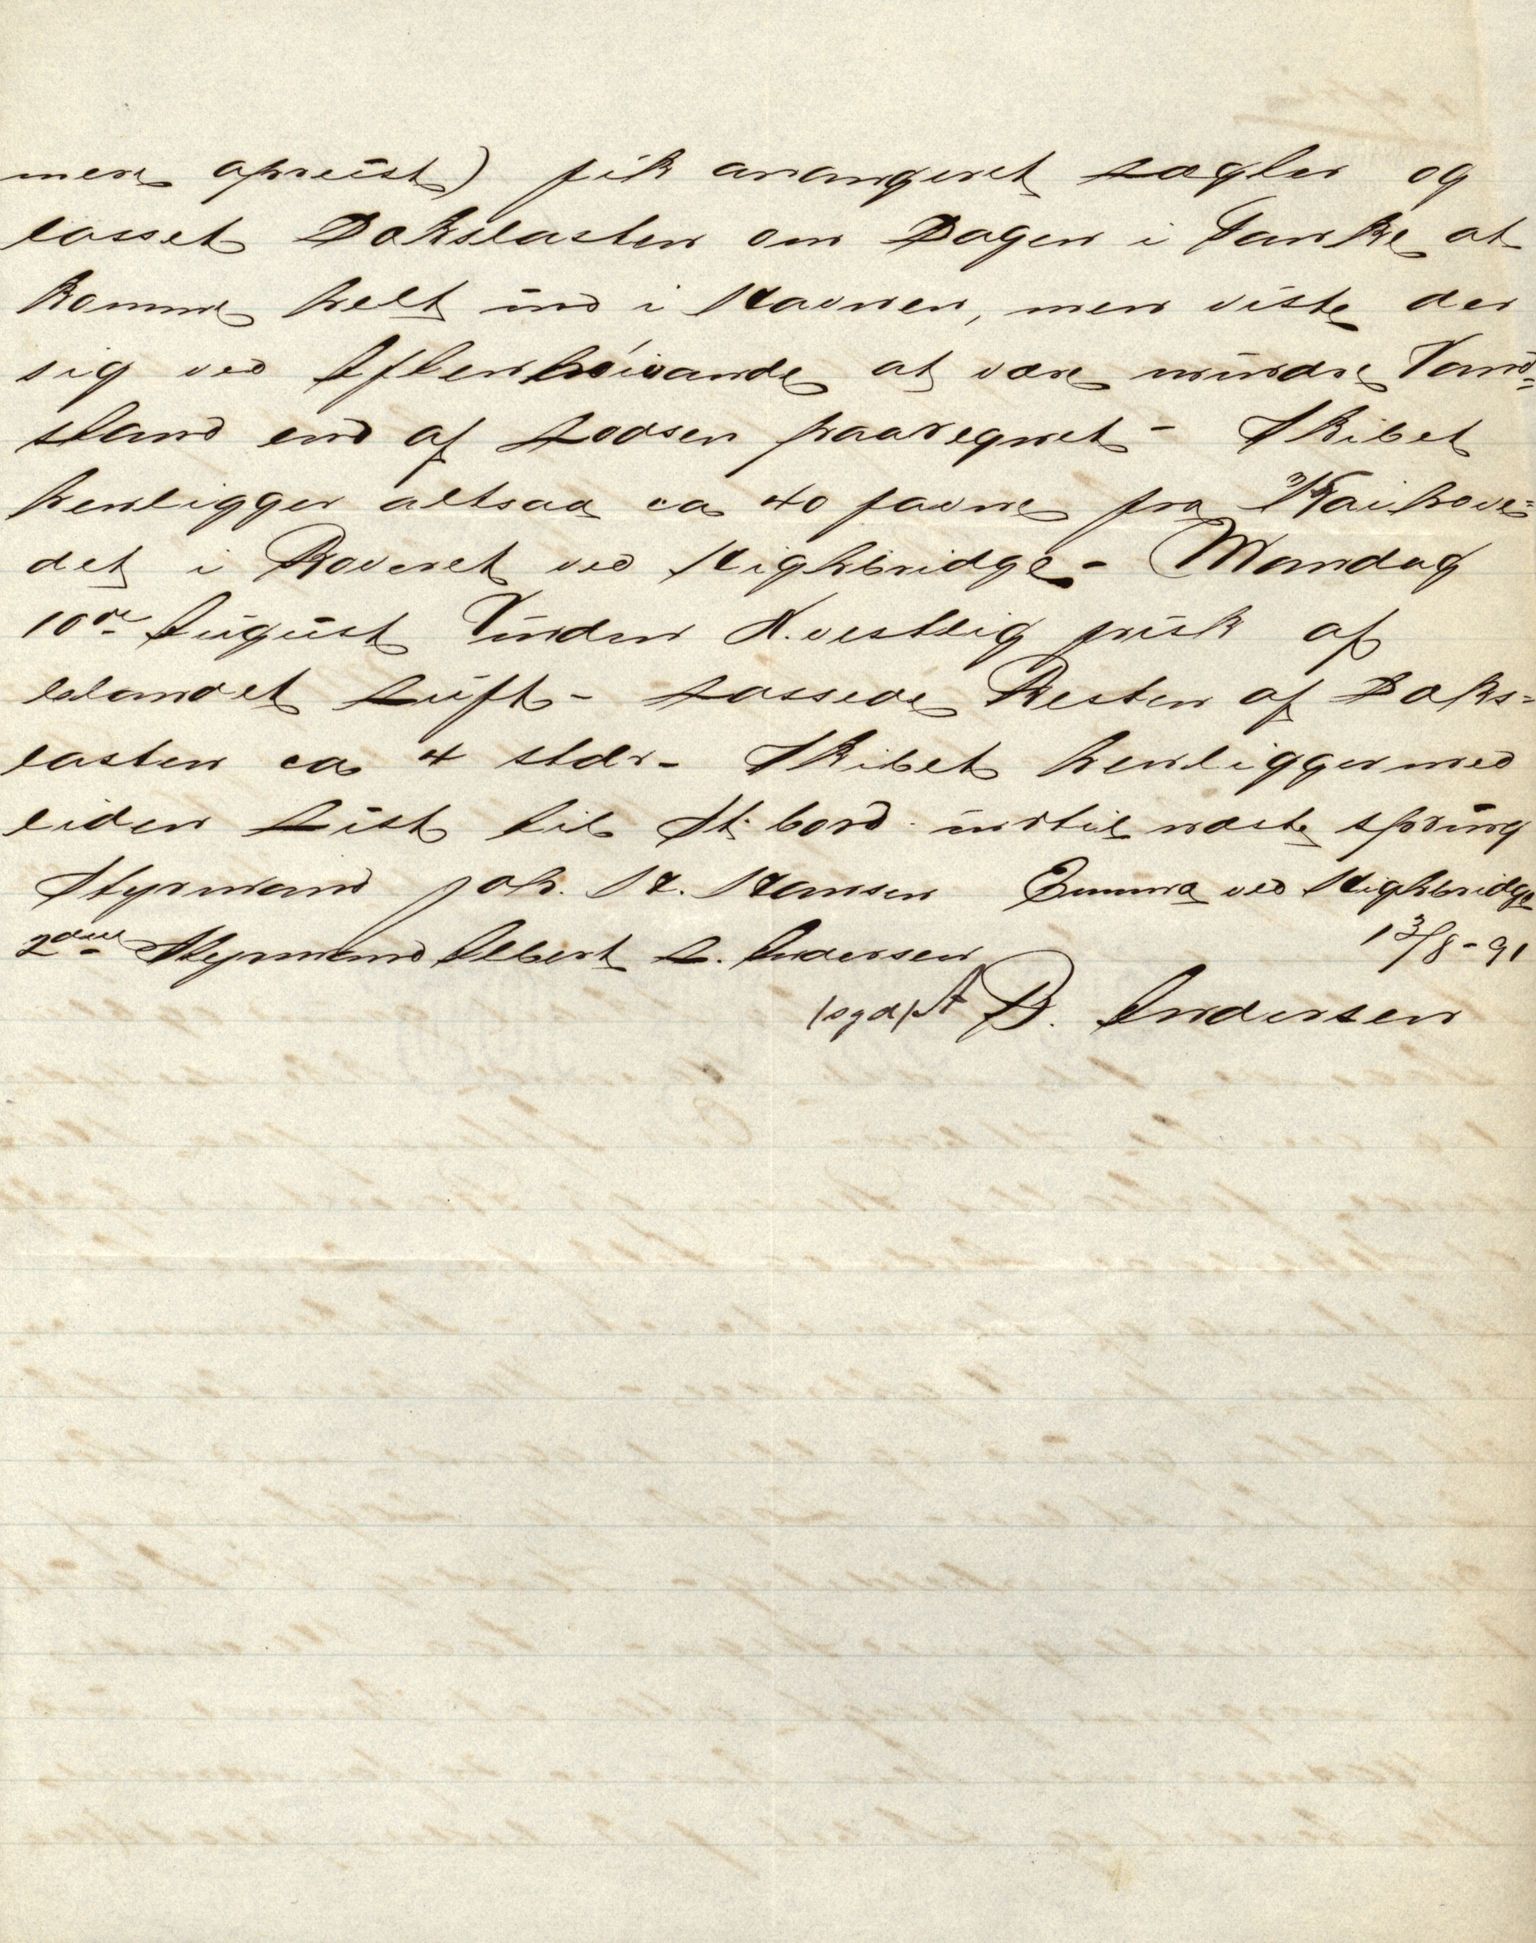 mere opreist) fik arangeret Lægler og
losset Dækslasten om Dagen i Tanke at
komme helt ind i Havnen, men viste der
sig ved Aftenhöivande at være mindre Vand=
stand end af Lodsen paaregnet - Skibet
henligger altsaa ca 40 favne fra Kaihove=
det i Roveret ved Highbridge - Mandag
10de August Vinden N. vestlig frisk af
blandet Luft - Lossede Resten af Dæks=
lasten ca 4 stdr - Skibet henligger med
liden List til St. bord indtil næste spring
Styrmand Joh. H. Hansen Emma ved Highbridge
2den Styrmand Albert L. Andersen 13/8-91
(sgd) A B. Andersen